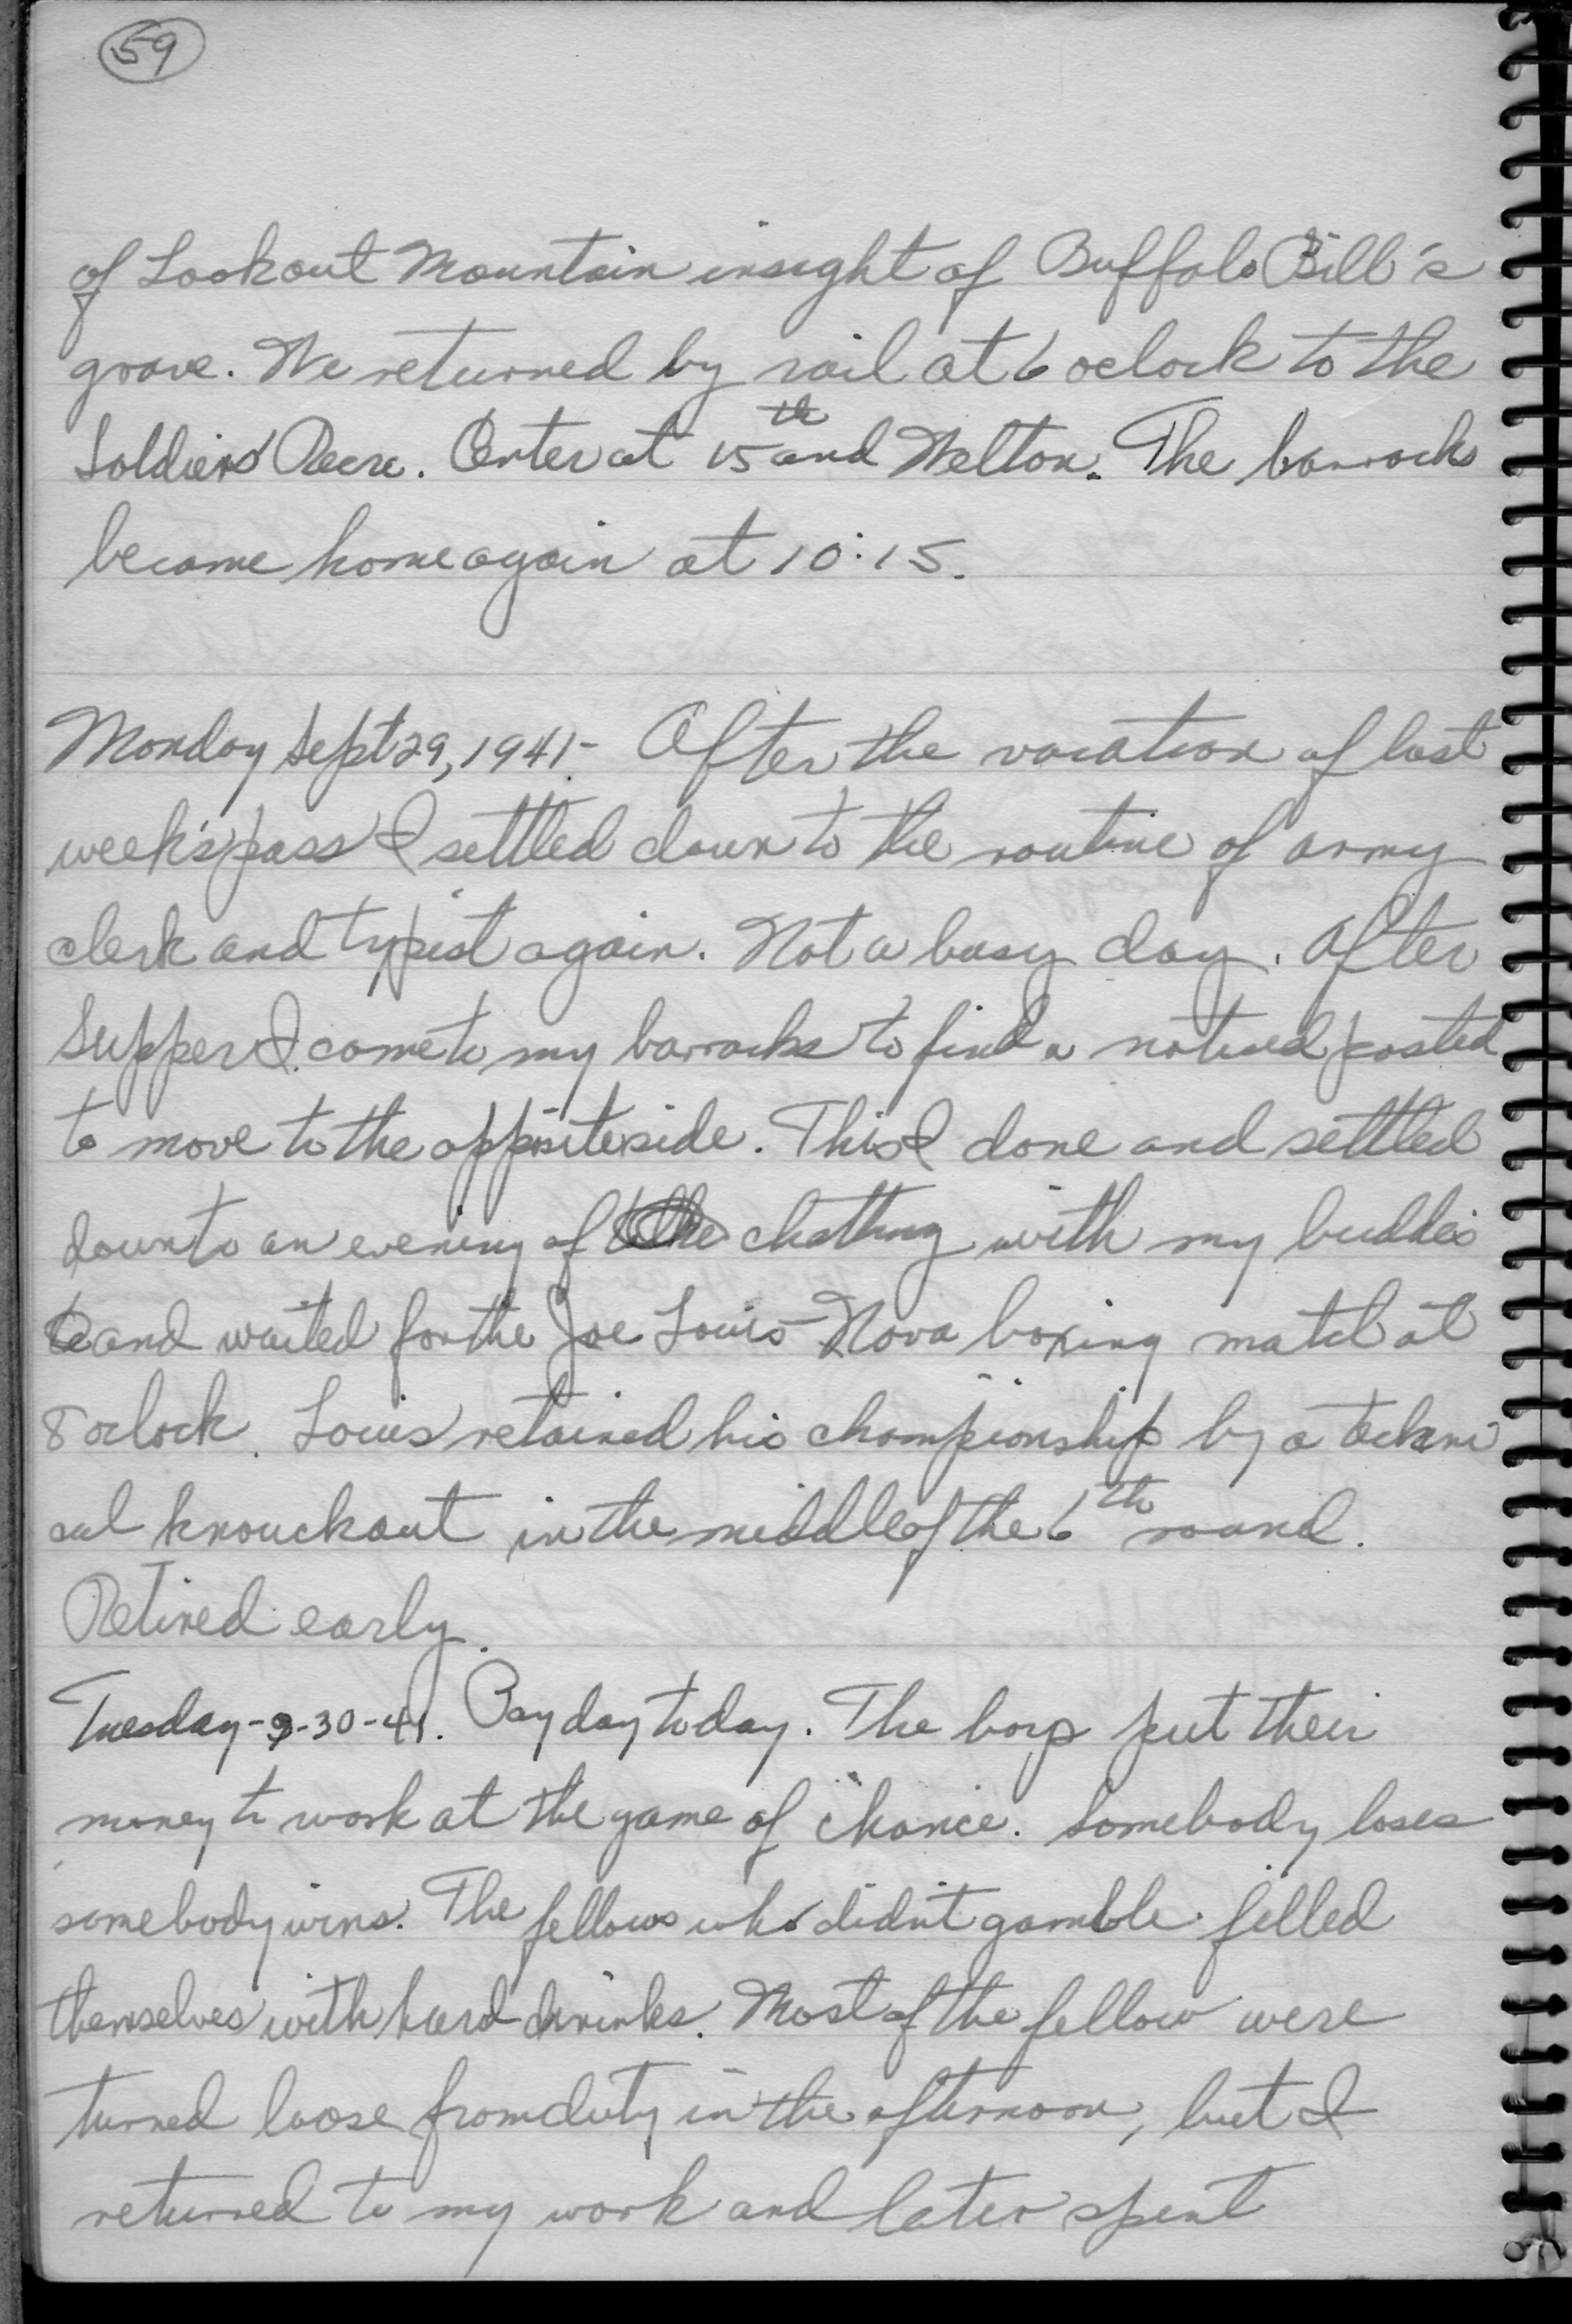 59
of Lookout Mountain insight of Buffalo Bill's
grave. We returned by rail at 6 oclock to the
Soldiers' Recre. Center at 15th and Welton. The barracks
became home again at 10:15.
Monday Sept 29, 1941- After the vacation of last
week's pass I settled down to the routine of army
clerk and typist again. Not a busy day. After
supper I came to my barracks to find a noticed posted
to move to the opposite side. This I done and settled
down to an evening of the chatting with my buddies
and waited for the Joe Louis-Nova boxing match at
8 oclock. Louis retained his championship by a techni
cal knouckout in the middle of the 6th round.
Retired early.
Tuesday-9-30-41. Pay day today. The boys put their
money to work at the game of chance. Somebody loses
somebody wins. The fellows who didn't gamble filled
themselves with hard drinks. Most of the fellow were
turned loose from duty in the afternoon, but I
returned to my work and later spent